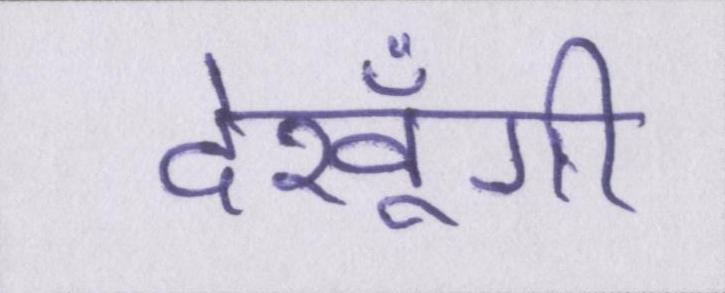 देखूँगी